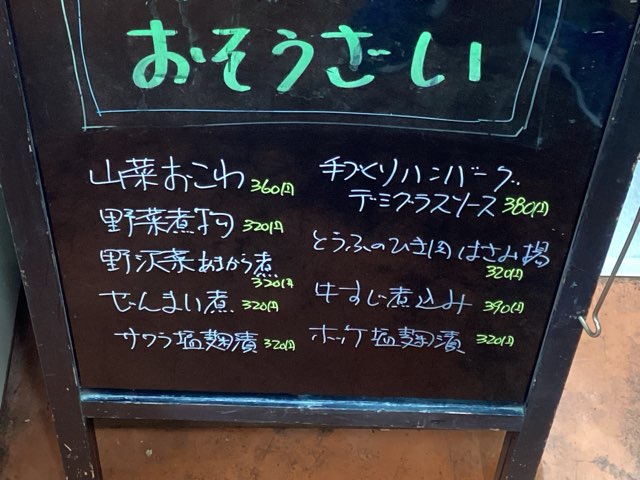 おそうざい
山菜おこわ 360円
野菜煮物 320円
野沢菜あまから煮
320円
ぜんまい煮 320円
サワラ塩麹漬 320円
手づくりハンバーグ
デミグラスソース 380円
とうふのひき肉はさみ揚
320円
牛すじ煮込み 390円
ホッケ塩麹漬 320円